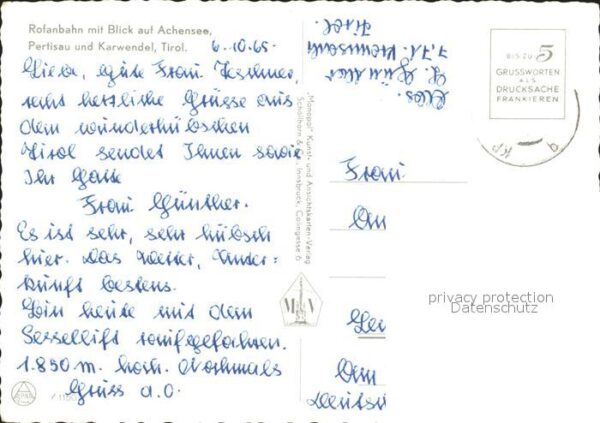 Rofanbahn mit Blick auf Achensee,
Pertisau und Karwendel, Tirol.
6.10.65.
Liebe, gute Frau
recht herzliche Grüsse aus
dem wunderhübschen
Tirol sendet Ihnen sowie
Ihr Gatte
Frau Günther.
Es ist sehr, sehr hübsch
hier. Das Wetter, Unter=
kunft bestens.
Bin heute mit dem
Sessellift raufgefahren.
1.850 m. hoch. Nochmals
Gruss a.O.
Abs.
Günther
Tirol.
"Monopol" Kunst- und Ansichtskarten-Verlag
Schöllhorn & Innsbruck, Colingasse 6
BIS ZU 5
GRUSSWORTEN
ALS
DRUCKSACHE
FRANKIEREN
Frau
privacy protection
Datenschutz